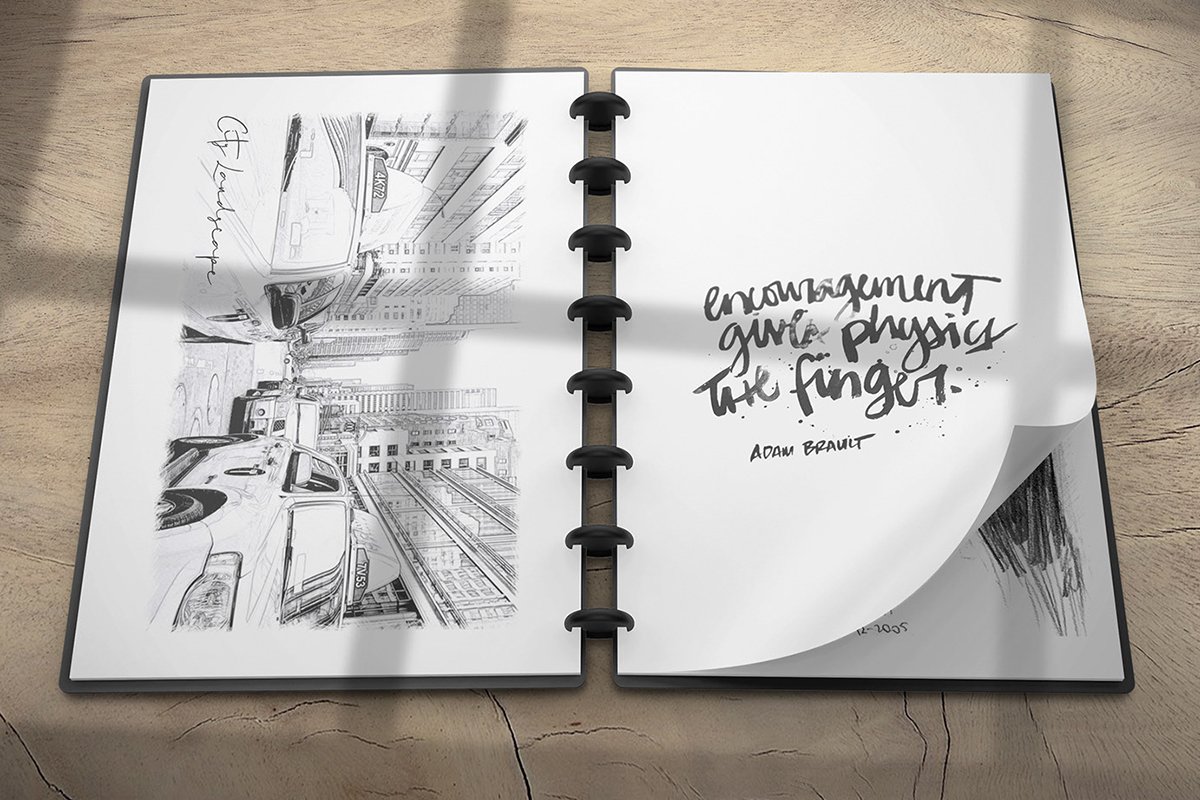 City Landscape
4K72
encouragement
gives physics
the finger.
ADAM BRAULT
12-2005